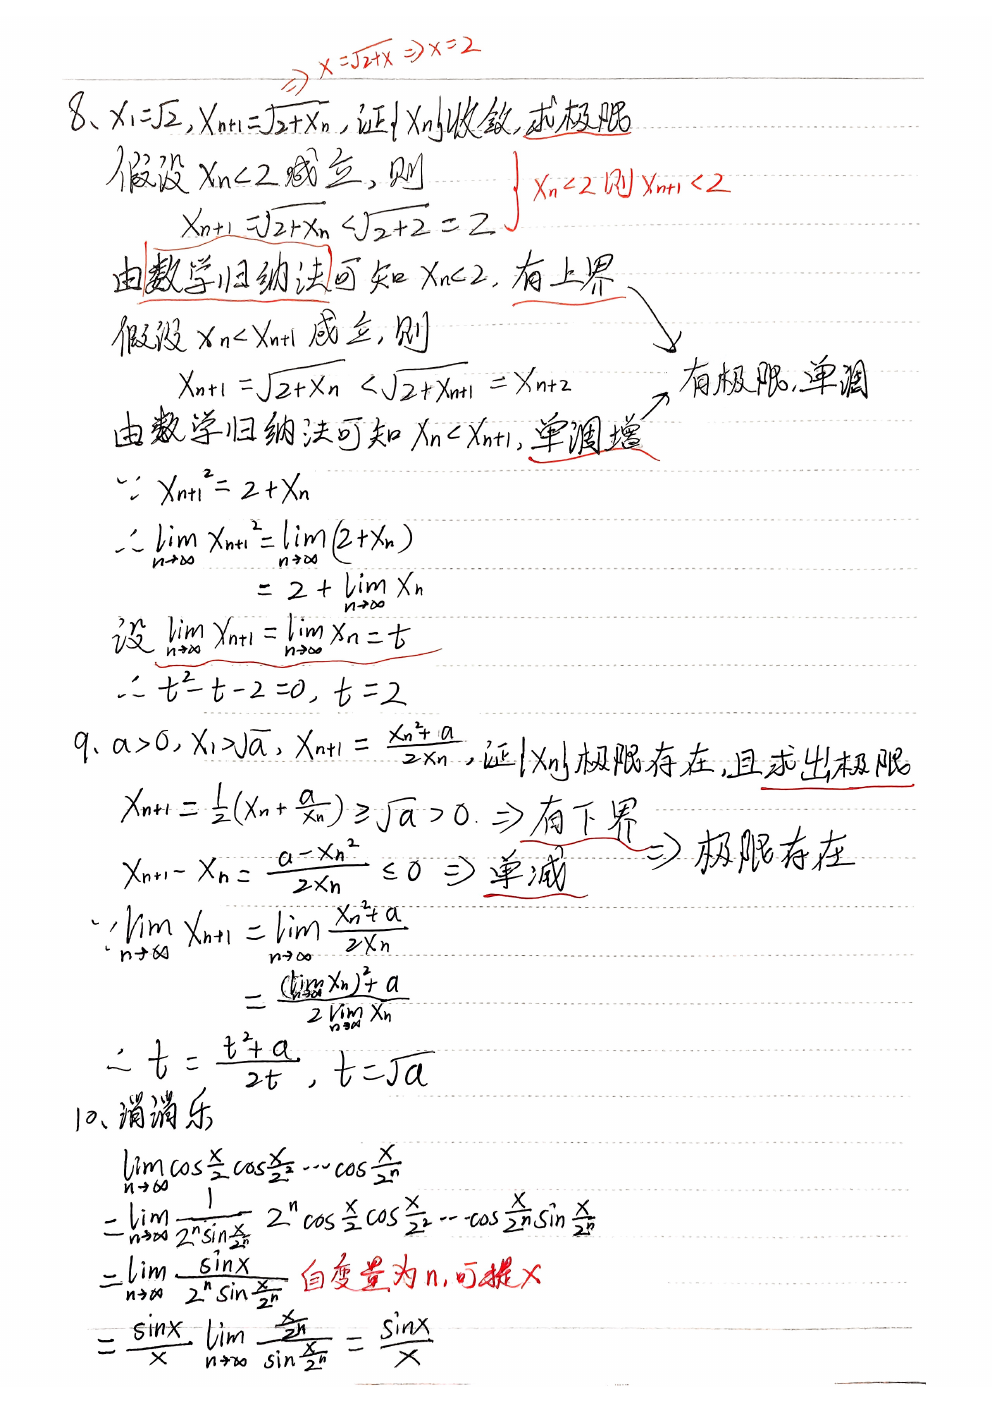 ⇒ x=√(2+x) ⇒ x=2
8、x₁=√2, xₙ₊₁=√(2+xₙ), 证{xₙ}收敛,求极限
假设 xₙ<2 成立,则
xₙ₊₁=√(2+xₙ)<√(2+2)=2
} xₙ<2 则 xₙ₊₁<2
由数学归纳法可知 xₙ<2, 有上界
假设 xₙ<xₙ₊₁ 成立,则
xₙ₊₁=√(2+xₙ)<√(2+xₙ₊₁)=xₙ₊₂
有极限,单调
由数学归纳法可知 xₙ<xₙ₊₁, 单调增
∵ xₙ₊₁²=2+xₙ
∴ lim n→∞ xₙ₊₁²=lim n→∞ (2+xₙ)
=2+lim n→∞ xₙ
设 lim n→∞ xₙ₊₁=lim n→∞ xₙ=t
∴ t²-t-2=0, t=2
9、a>0, x₁>√a, xₙ₊₁=(xₙ²+a)/2xₙ, 证{xₙ}极限存在,且求出极限
xₙ₊₁=1/2(xₙ+a/xₙ)≥√a>0. ⇒有下界
xₙ₊₁-xₙ=(a-xₙ²)/2xₙ ≤0 ⇒ 单减
⇒ 极限存在
∵ lim n→∞ xₙ₊₁=lim n→∞ (xₙ²+a)/2xₙ
=((lim n→∞ xₙ)²+a)/(2 lim n→∞ xₙ)
∴ t=(t²+a)/2t, t=√a
10、消消乐
lim n→∞ cos x/2 cos x/2² ⋯ cos x/2ⁿ
=lim n→∞ 1/(2ⁿ sin x/2ⁿ) 2ⁿ cos x/2 cos x/2² ⋯ cos x/2ⁿ sin x/2ⁿ
=lim n→∞ sinx/(2ⁿ sin x/2ⁿ) 自变量为n,可提x
=sinx/x lim n→∞ (x/2ⁿ)/(sin x/2ⁿ)=sinx/x